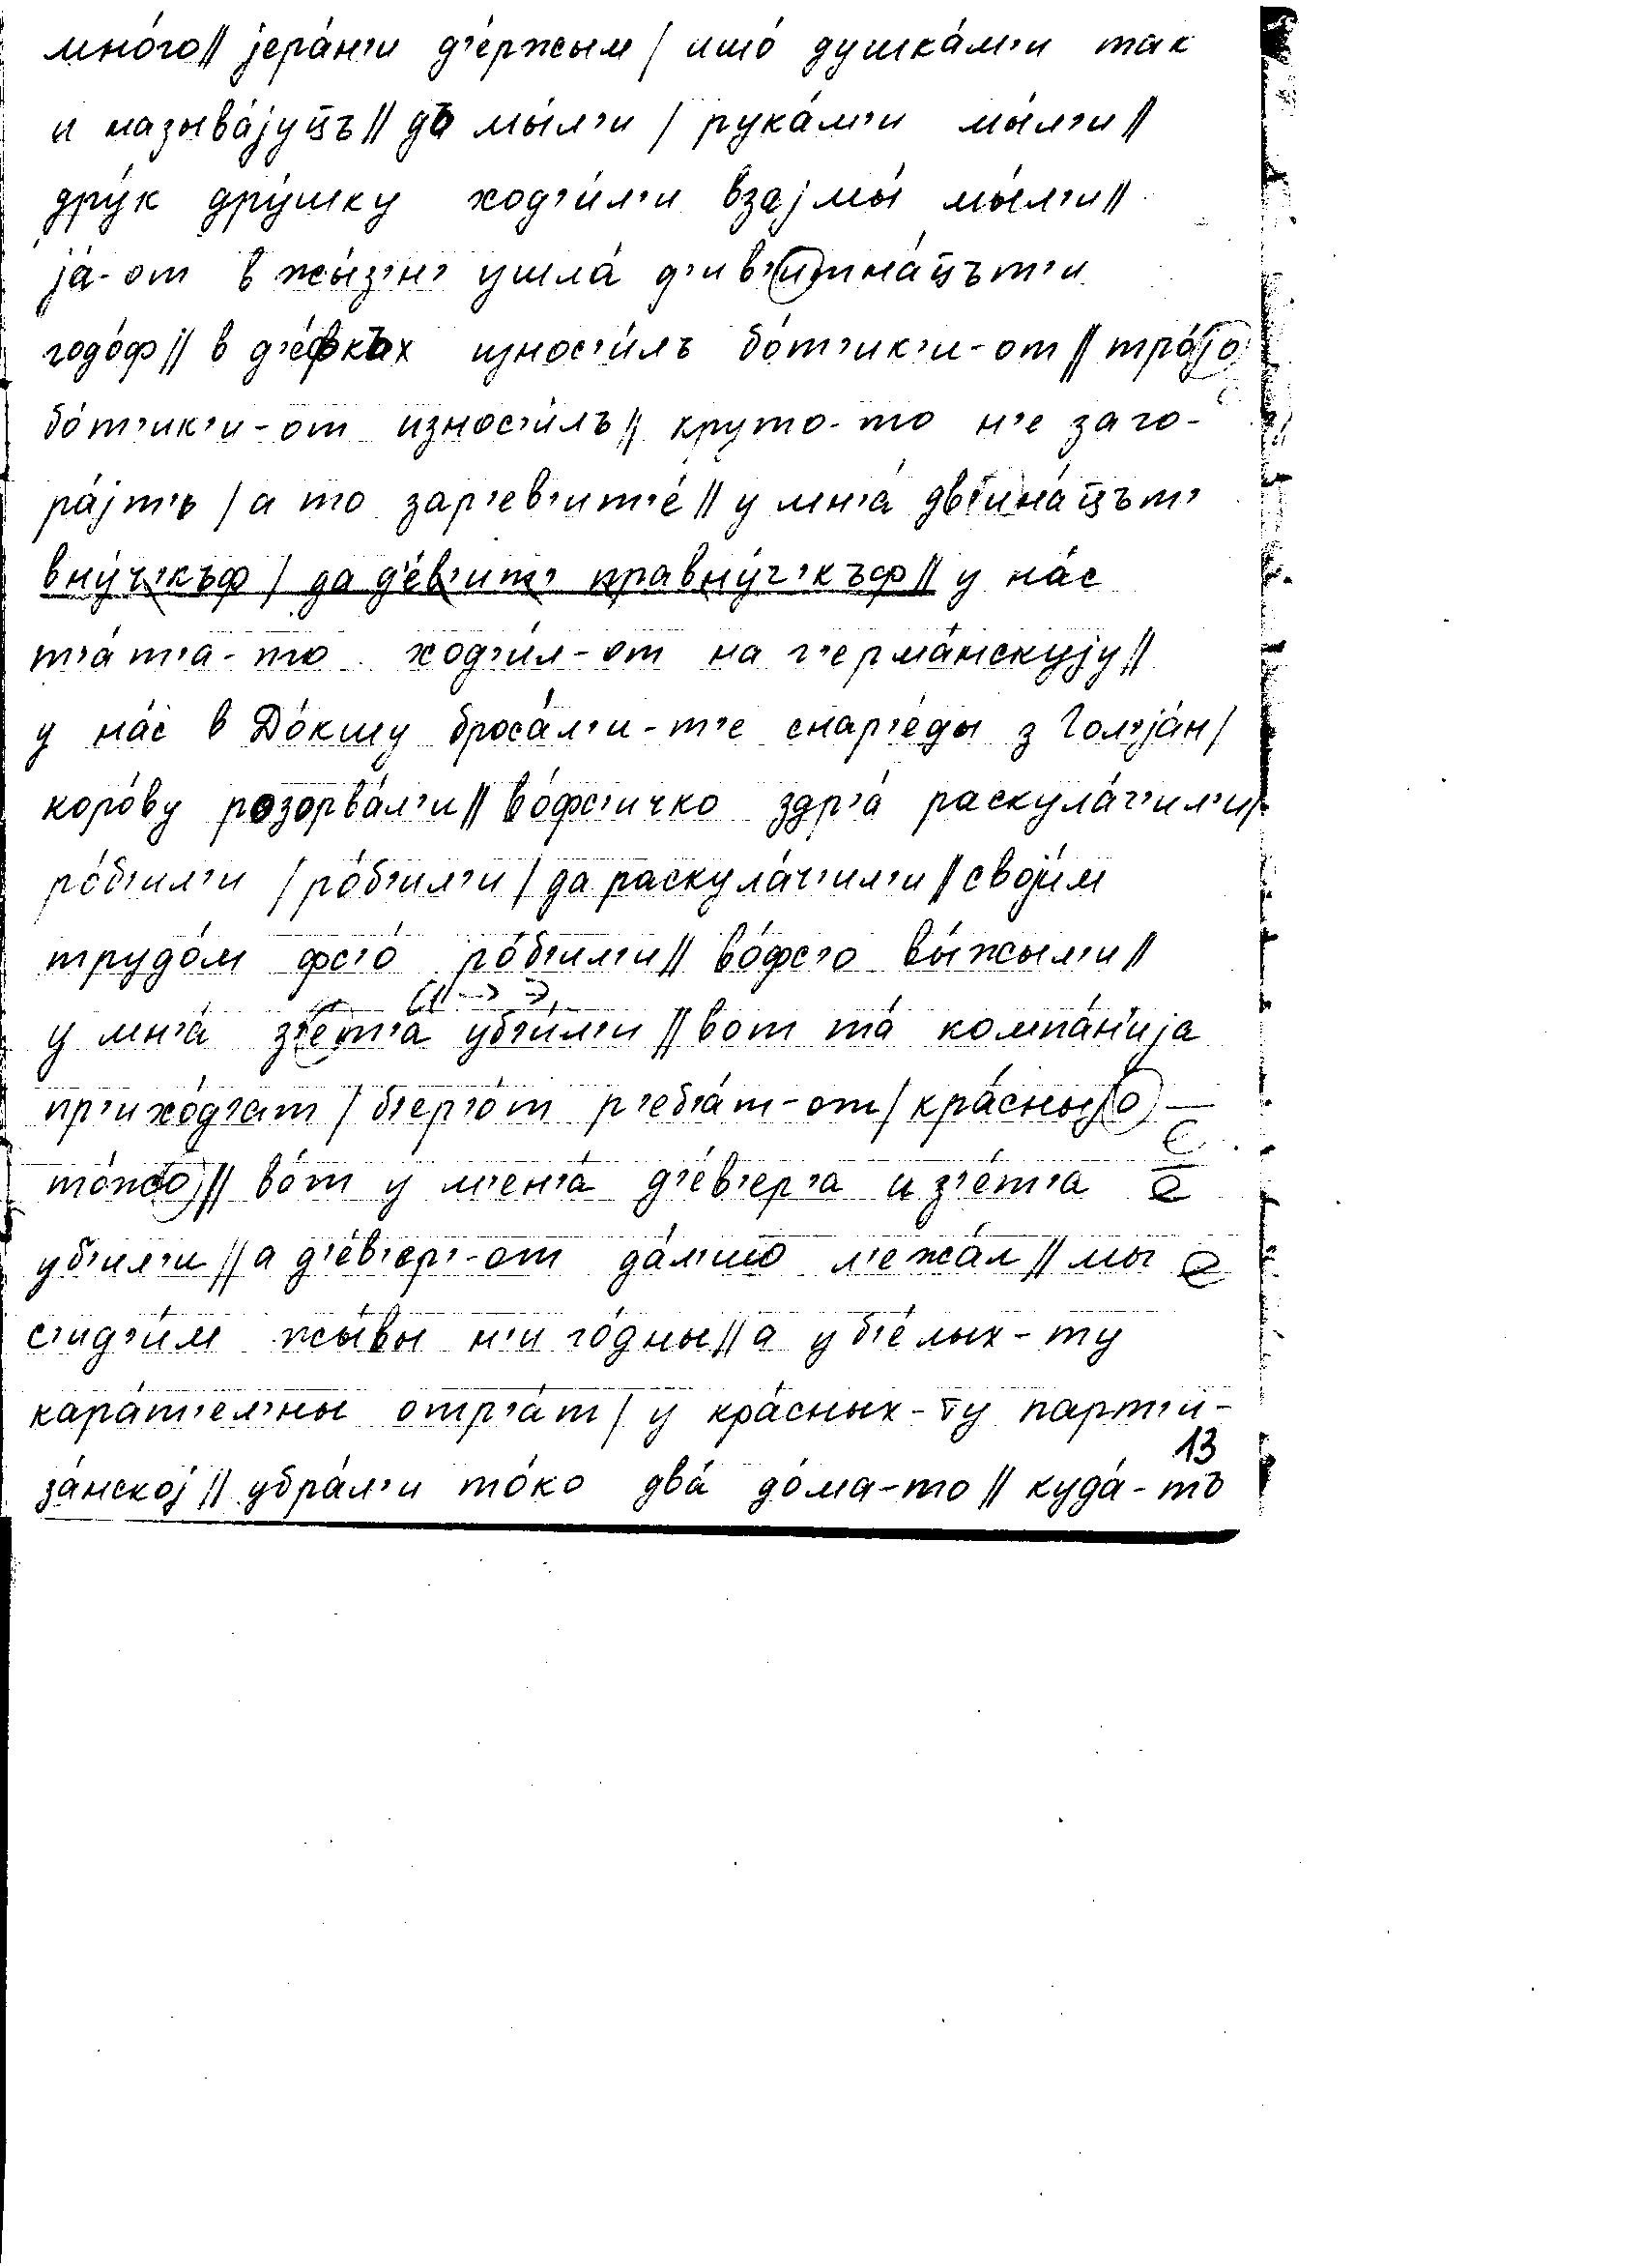 мно́го // јера́н'и д'е́ржым / ишо́ душка́м'и так
и называ́јуц̄ъ // да мы́л'и / рука́м'и мы́л'и //
дру́к дру́шку ход'и́л'и взајмы́ мы́л'и //
ја́-от в жы́з'н' ушла́ д'ив'итна́ц̄ът'и
годо́ф // в д'е́фках износ'и́лъ бо́т'ик'и-от // тро́јо
бо́т'ик'и-от износ'и́лъ // круто-то н'е заго-
ра́јт'ь / а то зар'ев'ит'е́ // у мн'а́ дв'ина́ц̄ът'
вну́ч'къф / да д'е́в'ит' правну́ч'къф // у на́с
т'а́т'а-то ход'и́л-от на г'ерма́нскују //
у на́с в До́кшу броса́л'и-т'е снар'е́ды з Гол'ја́н /
коро́ву розорва́л'и // во́фс'ичко здр'а́ раскула́ч'ил'и /
ро́б'ил'и / ро́б'ил'и / да раскула́ч'ил'и // своји́м
трудо́м фс'о́ ро́б'ил'и // во́фс'о вы́жыл'и //
у мн'а́ з'е́т'а уб'и́л'и // вот та́ компа́н'ија
пр'ихо́д'ат / б'ер'о́т р'еб'а́т-от / кра́сныјо
то́жо // во́т у м'ен'а́ д'е́в'ер'а и з'е́т'а е
уб'ил'и // а д'е́в'ер'-от да́л'шо л'ежа́л // мы е
с'ид'и́м жы́вы н'и го́дны // а у б'е́лых-ту
кара́т'ел'ны отр'а́т / у кра́сных-ту парт'и-
13
за́нској // убра́л'и то́ко два́ до́ма-то // куда́-тъ